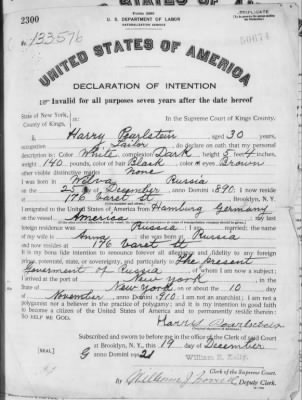 Form 2202
2300
U. S. DEPARTMENT OF LABOR
NATURALIZATION SERVICE
No. 133576
UNITED STATES OF AMERICA
DECLARATION OF INTENTION
Invalid for all purposes seven years after the date hereof
State of New York,
County of Kings,
In the Supreme Court of Kings County.
I, Harry Burlstein, aged 30 years,
occupation Tailor, do declare on oath that my personal
description is: Color White, complexion Dark, height 5 feet 4 inches,
weight 140 pounds, color of hair Black, color of eyes Brown
other visible distinctive marks None
I was born in Wilna Russia
on the 25 day of December, anno Domini 1890; I now reside
at 176 Varet St
I emigrated to the United States of America from Hamburg Germany
on the vessel America; my last
foreign residence was Russia; I am married; the name
of my wife is Anna; she was born in Russia
and now resides at 176 Varet St
It is my bona fide intention to renounce forever all allegiance and fidelity to any foreign
prince, potentate, state, or sovereignty, and particularly to The present
Government of Russia, of whom I am now a subject; I
arrived at the port of New York, in the
State of New York, on or about the 10 day
of November, anno Domini 1910; I am not an anarchist; I am not a
polygamist nor a believer in the practice of polygamy; and it is my intention in good faith
to become a citizen of the United States of America and to permanently reside therein:
SO HELP ME GOD.
Subscribed and sworn to before me in the office of the Clerk of said Court
at Brooklyn, N. Y., this 19 day of December
[SEAL]
anno Domini 1921
William E. Kelly
Clerk of the Supreme Court.
By Deputy Clerk.